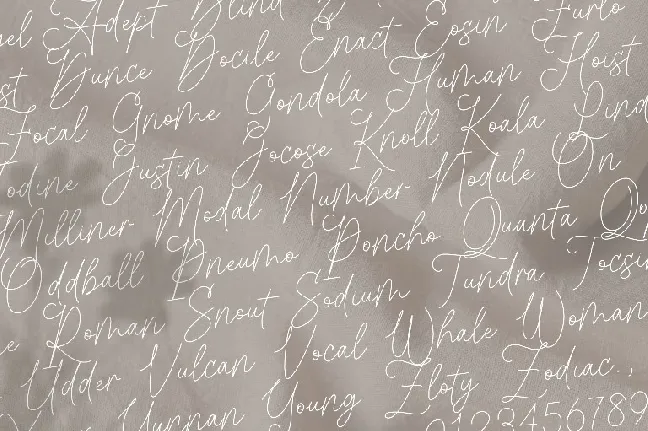 Adept Blind & Enact Eosin Furlo
Dunce Docile Human Hoist
Focal Gnome Gondola Knoll Koala
Justin Jocose Number Nodule On
Milliner Modal Poncho Quanta
Oddball Pneumo Sodium Tundra
Roman Snout Vocal Whale Woman
Udder Vulcan Young Zloty Zodiac
0123456789